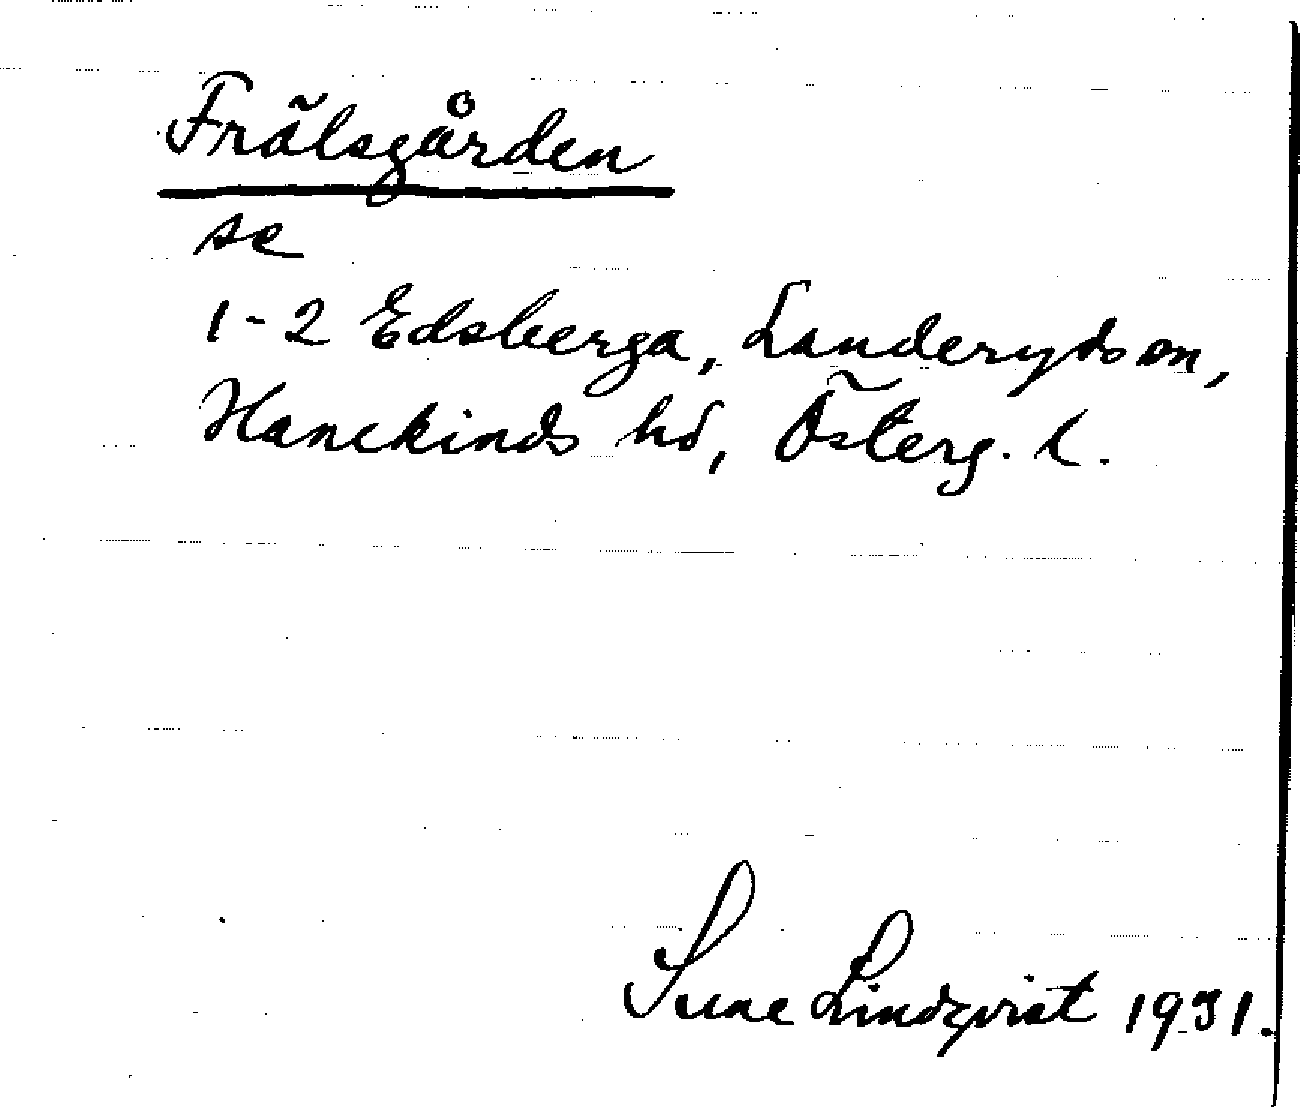 Frälsgården
se
1-2 Edsberga, Landeryds sn,
Hanekinds hd, Österg. l.
Sune Lindqvist 1931.